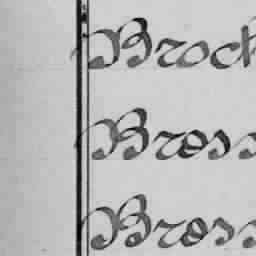 Brock
Bross
Bross